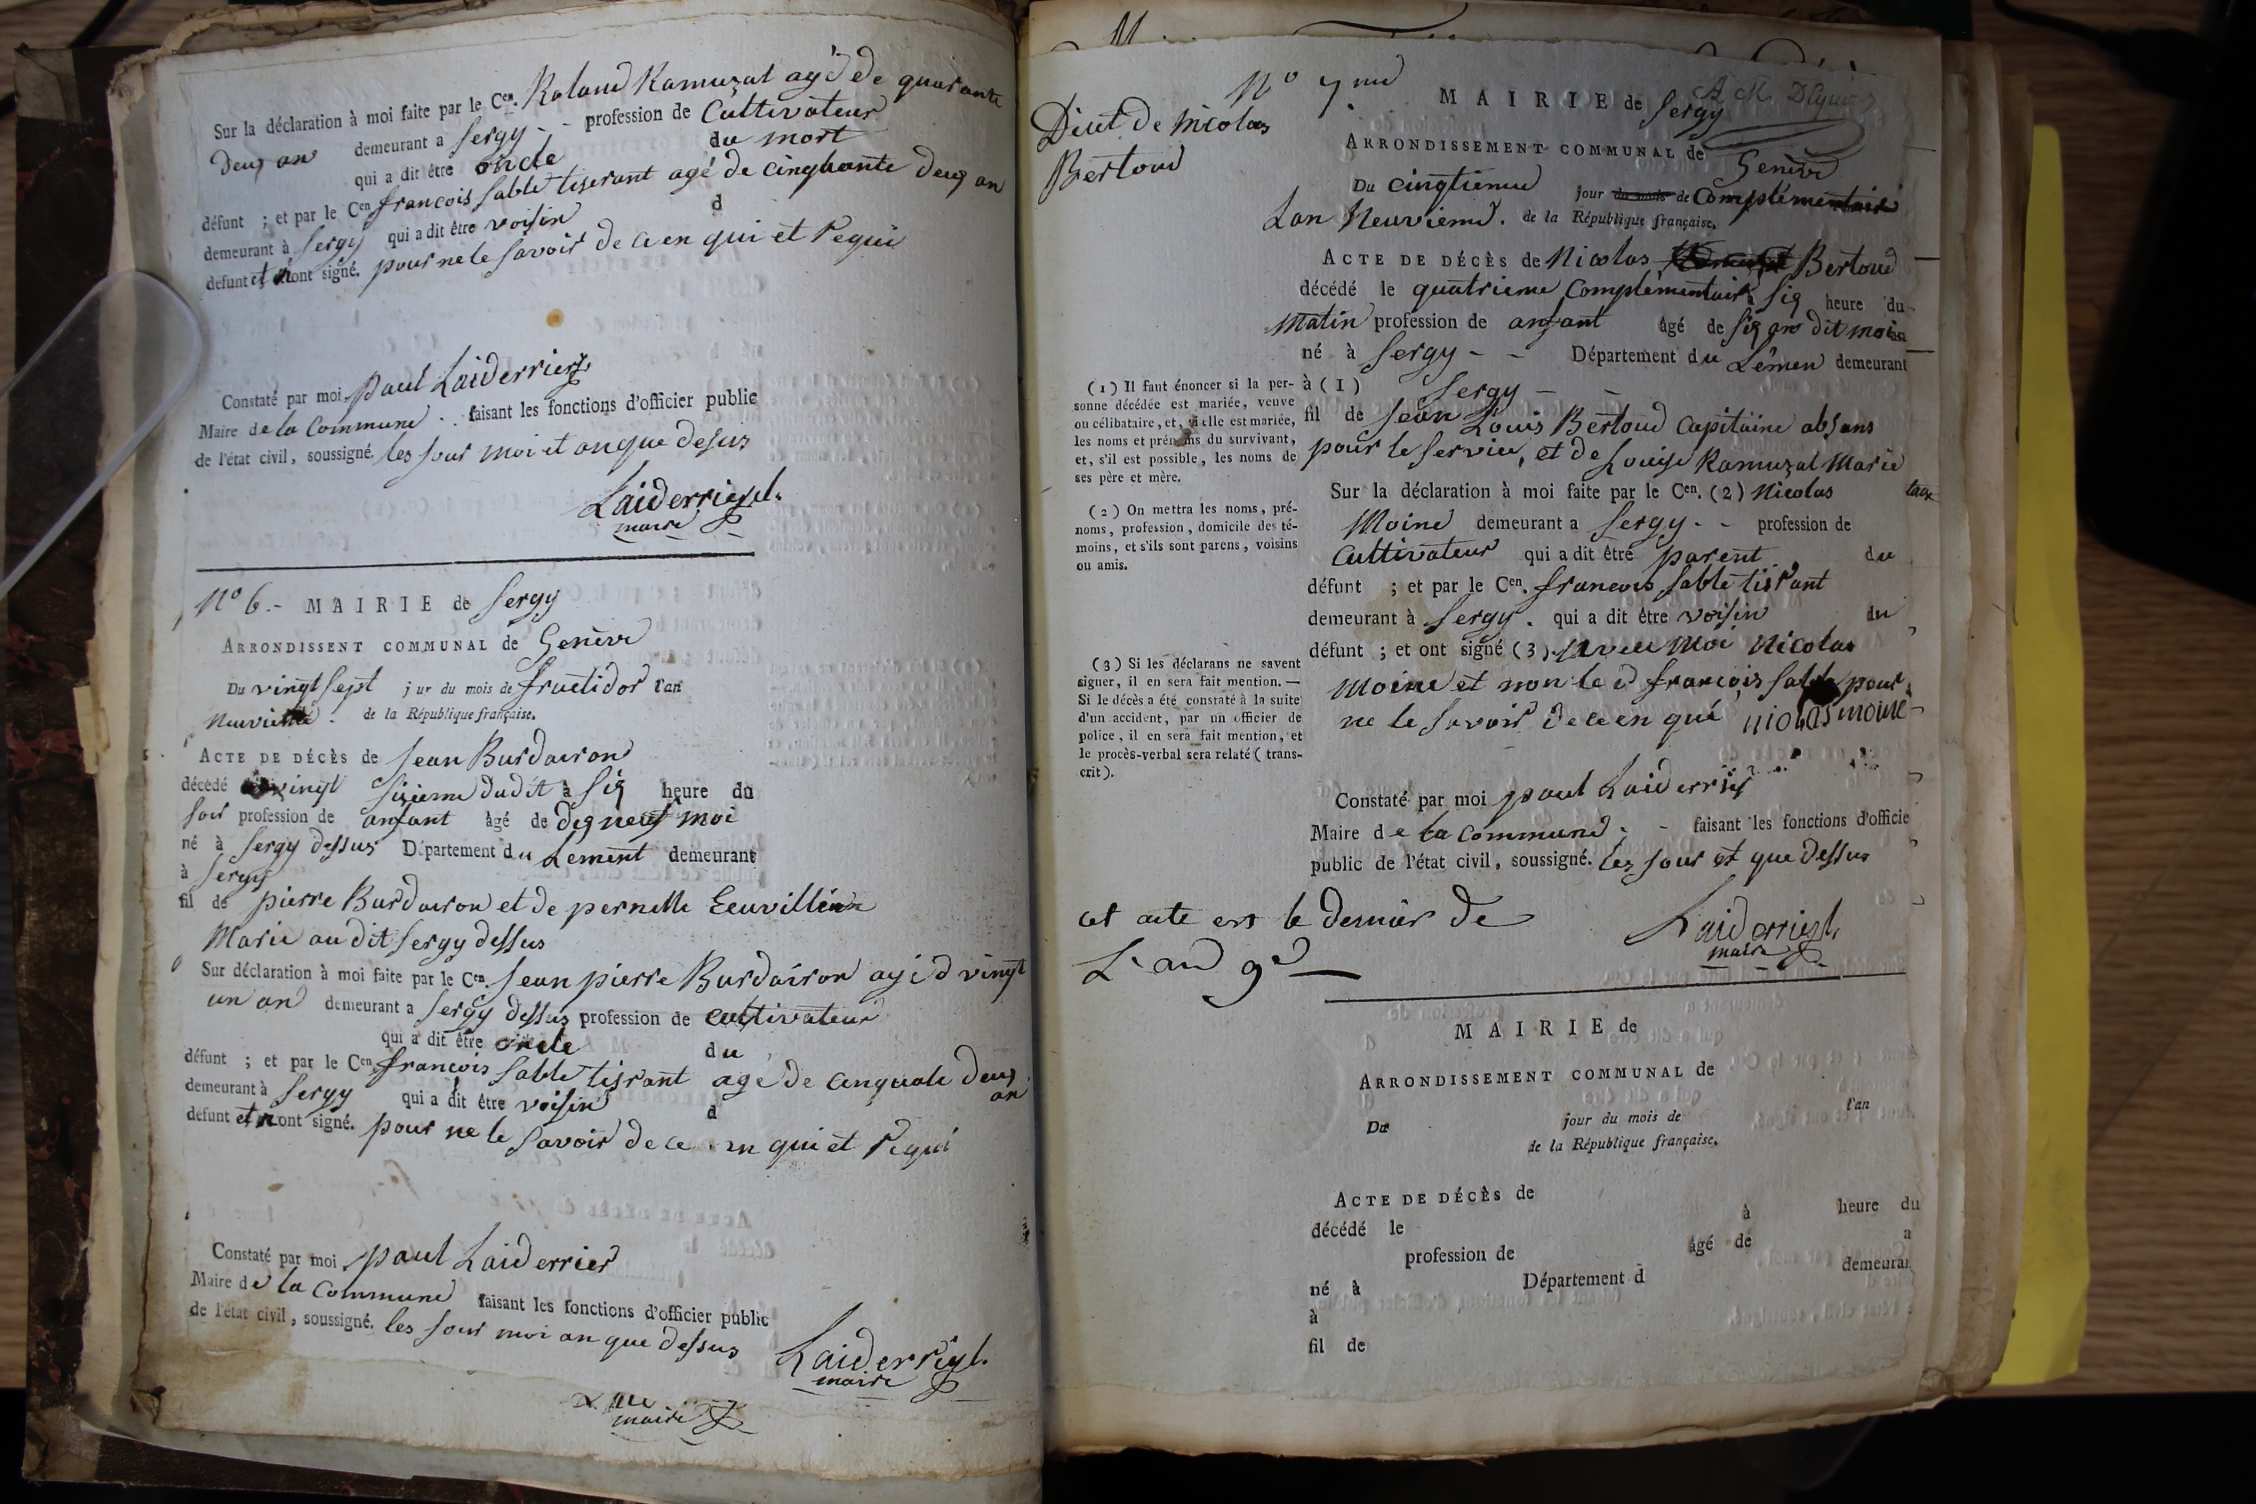 Sur la déclaration à moi faite par le Cen. Roland Ramuzat agé de quarante
deux an demeurant a Sergy - - profession de Cultivateur
qui a dit être oncle du mort
défunt ; et par le Cen françois Sablé tiserant agé de cinquante deux an
demeurant à Sergy qui a dit être voisin d
defunt et n'ont signé. pour ne le savoir de ce en qui et requi
Constaté par moi paul Laiderrier
Maire de la Commune . . faisant les fonctions d'officier public
de l'état civil, soussigné. les jour moi et an que desus
Laiderrier
maire
No 6.- MAIRIE de Sergy
ARRONDISSENT COMMUNAL de Genève
Du vingt sept j ur du mois de fructidor l'an
neuvieme . de la République française.
ACTE DE DÉCÈS de Jean Burdairon
décédé vingt sixieme dudit à six heure du
soir profession de anfant âgé de dix neuf moi
né à Sergy dessus Département du Lement demeurant
à Sergy
fil de pierre Burdairon et de pernette
Marié au dit Sergy dessus
Sur déclaration à moi faite par le Cen. Jean pierre Burdairon agé d vingt
un an demeurant a Sergy dessus profession de cultivateur
qui a dit être oncle du
défunt ; et par le Cen françois Sablé tisrant agé de cinquate deux
an
demeurant à Sergy qui a dit être voisin d
defunt et n ont signé. pour ne le savoir de ce en qui et requi
Constaté par moi paul Laiderrier
Maire de la Commune faisant les fonctions d'officier public
de l'état civil, soussigné. les jour moi an que dessus
Laiderrier
maire
maire
No 7me
Dècet de Nicolas
Bertoud
MAIRIE de Sergy
ARRONDISSEMENT COMMUNAL de Genève
Du cinqtieme jour du mois de Complémentair
Lan Neuvieme. de la République française.
ACTE DE DÉCÈS de Nicolas Bertoud
décédé le quatrieme Complementair à six heure du
Matin profession de anfant âgé de six an dit moi
né à Sergy - - Département du Lémen demeurant
à (1) Sergy - -
fil de Jean Louis Bertoud Capitaine absans
pour le Service, et de Louise Ramuzat Marié
Sur la déclaration à moi faite par le Cen. (2) Nicolas
Moine demeurant a Sergy - - profession de
Cultivateur qui a dit être parent du
défunt ; et par le Cen. francois Sablé tisrant
demeurant à Sergy . qui a dit être voisin du
défunt ; et ont signé (3) avec Moi Nicolas
Moine et non le d françois Sablé pour
ne le savoir de ce en qué nicolas moine
Constaté par moi paul Laiderrier
Maire de la Commune . - faisant les fonctions d'officie
public de l'état civil, soussigné. les jour et que dessus
Laiderrier
maire
(1) Il faut énoncer si la per-
sonne décédée est mariée, veuve
ou célibataire, et, si elle est mariée,
les noms et prénoms du survivant,
et, s'il est possible, les noms de
ses père et mère.
(2) On mettra les noms, pré-
noms, profession, domicile des té-
moins, et s'ils sont parens, voisins
ou amis.
(3) Si les déclarans ne savent
signer, il en sera fait mention. —
Si le décès a été constaté à la suite
d'un accident, par un officier de
police, il en sera fait mention, et
le procès-verbal sera relaté (trans-
crit).
cet acte est le dernier de
L'an 9e
MAIRIE de
ARRONDISSEMENT COMMUNAL de
Du jour du mois de l'an
de la République française.
ACTE DE DÉCÈS de
décédé le à heure du
profession de âgé de
né à Département d demeuran
à
fil de